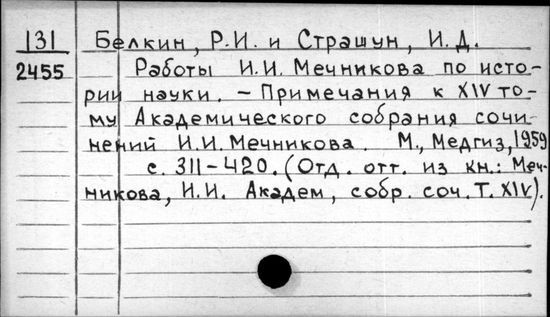 131 Белкин, Р.И. и Страшун, И.Д.
2455 Работы И.И. Мечникова по исто-
рии науки. – Примечания к XIV то-
му Академического собрания сочи-
нений И.И. Мечникова. М., Медгиз, 1959
с. 311–420. (Отд. отт. из кн.: Меч-
никова, И.И. Академ, собр. соч. Т. XIV).